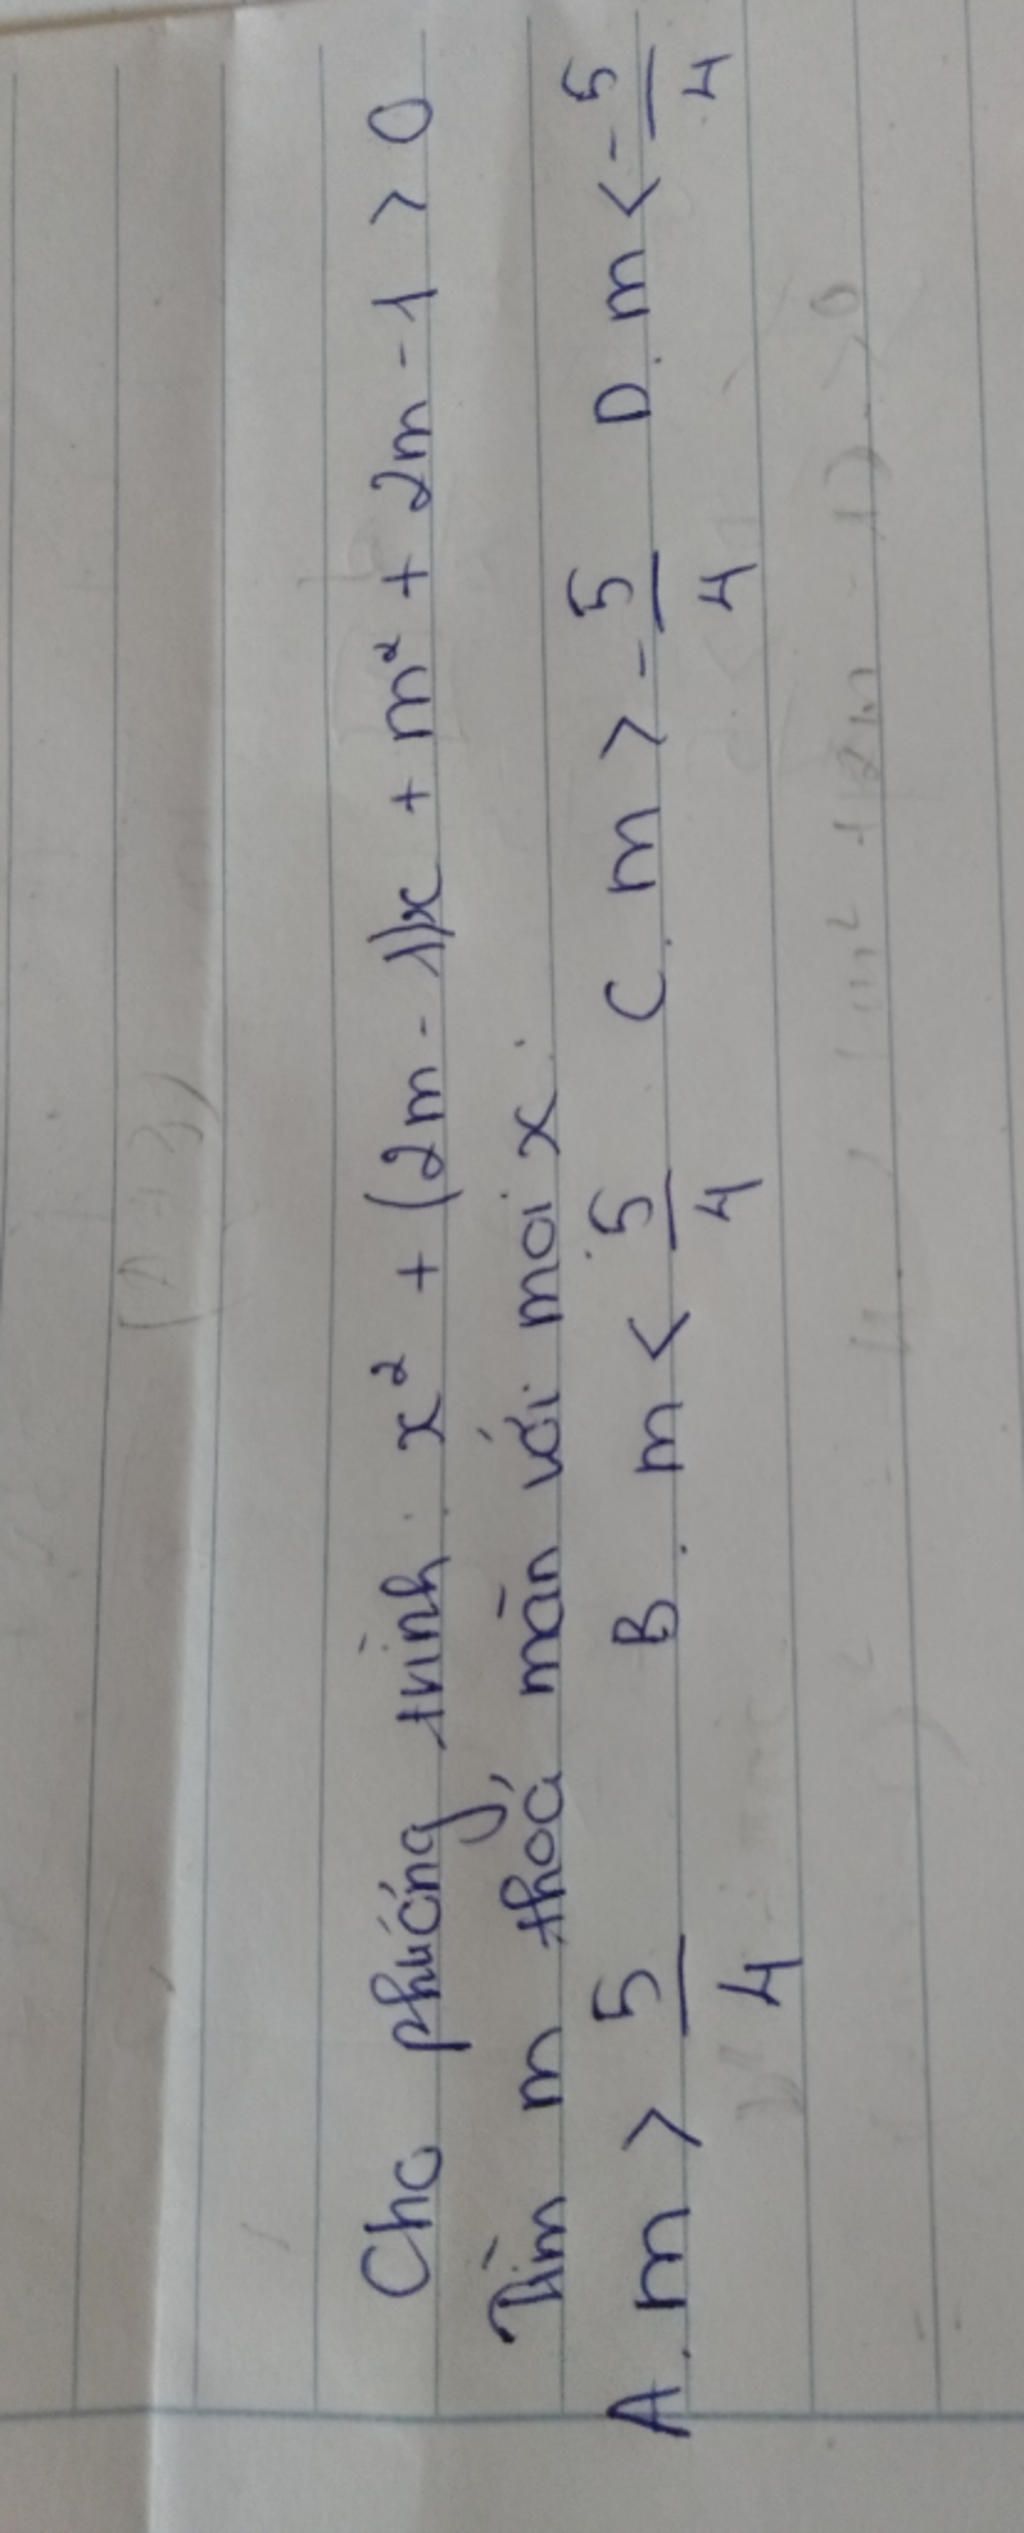 Cho phướng trình x² + (2m - 1)x + m² + 2m - 1 > 0
Tìm m thỏa mãn với mọi x.
A. m > 5/4 B. m < 5/4 C. m > -5/4 D. m < -5/4